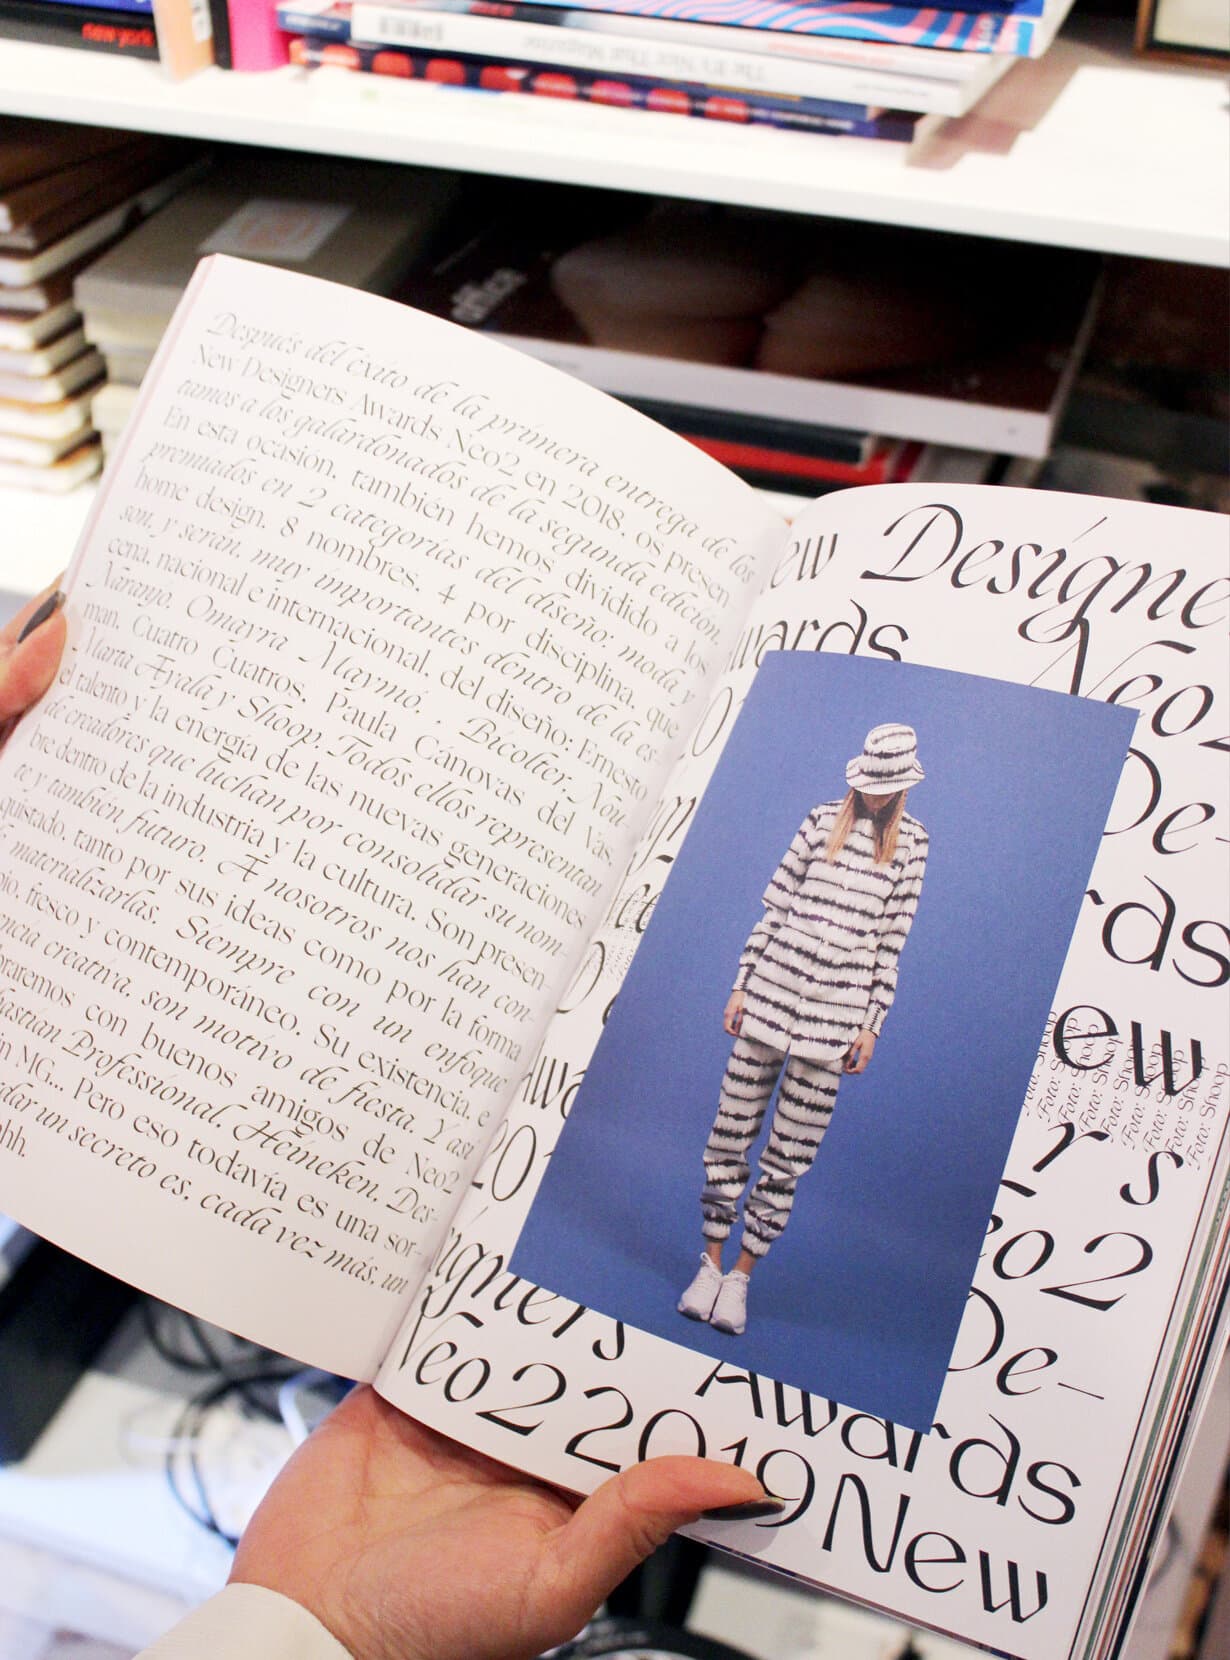 The It's Nice That Magazine
office
Después del éxito de la primera entrega de los
New Designers Awards Neo2 en 2018, os presen
tamos a los galardonados de la segunda edición.
En esta ocasión, también hemos dividido a los
premiados en 2 categorías del diseño: moda y
home design. 8 nombres, 4 por disciplina, que
son, y serán, muy importantes dentro de la es-
cena, nacional e internacional, del diseño: Ernesto
Naranjo, Omayra Maymó, , Bicolter, Nou-
man, Cuatro Cuatros, Paula Cánovas del Vas,
Marta Ayala y Shoop. Todos ellos representan
el talento y la energía de las nuevas generaciones
de creadores que luchan por consolidar su nom-
bre dentro de la industria y la cultura. Son presen-
te y también futuro. A nosotros nos han con-
quistado, tanto por sus ideas como por la forma
materializarlas. Siempre con un enfoque
fresco y contemporáneo. Su existencia, e
creativa, son motivo de fiesta. Y así
con buenos amigos de Neo2
Professional, Heineken, Des-
MG... Pero eso todavía es una sor-
un secreto es, cada vez más, un
ew Designe
wards Neo2
De-
rds
ew
rs
eo2
De-
igners Awards
Neo2 2019 New
Foto: Shoop
Foto: Shoop
Foto: Shoop
Foto: Shoop
Foto: Shoop
Foto: Shoop
Foto: Shoop
Foto: Shoop